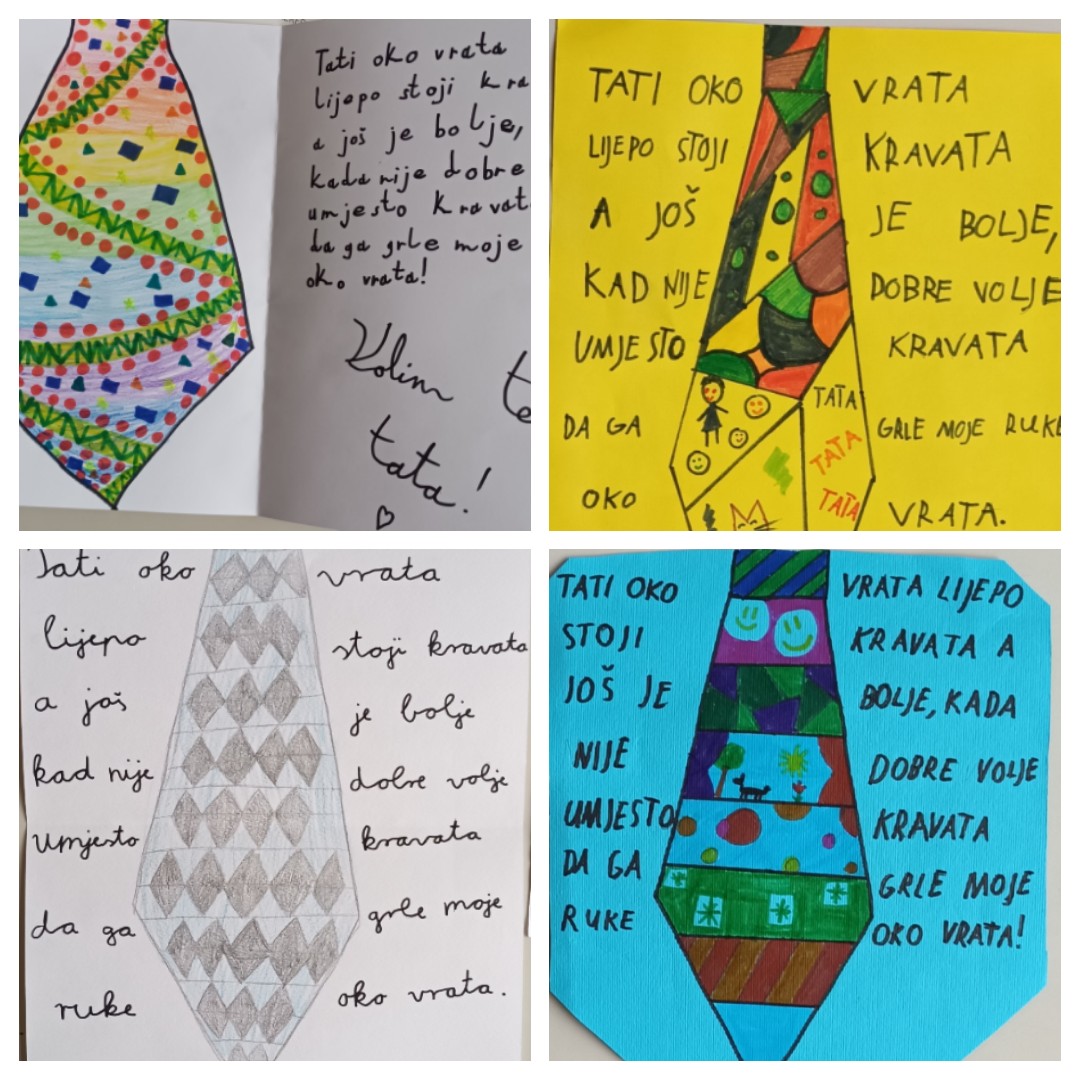 Tati oko vrata
lijepo stoji kra
a još je bolje,
kada nije dobre
umjesto kravat
da ga grle moje
oko vrata!
Volim te
tata!
TATI OKO VRATA
LIJEPO STOJI KRAVATA
A JOŠ JE BOLJE,
KAD NIJE DOBRE VOLJE
UMJESTO KRAVATA
DA GA GRLE MOJE RUKE
OKO VRATA.
TATA
TATA
TATA
Tati oko vrata
lijepo stoji kravata
a još je bolje
kad nije dobre volje
umjesto kravata
da ga grle moje
ruke oko vrata.
TATI OKO VRATA LIJEPO
STOJI KRAVATA A
JOŠ JE BOLJE, KADA
NIJE DOBRE VOLJE
UMJESTO KRAVATA
DA GA GRLE MOJE
RUKE OKO VRATA!